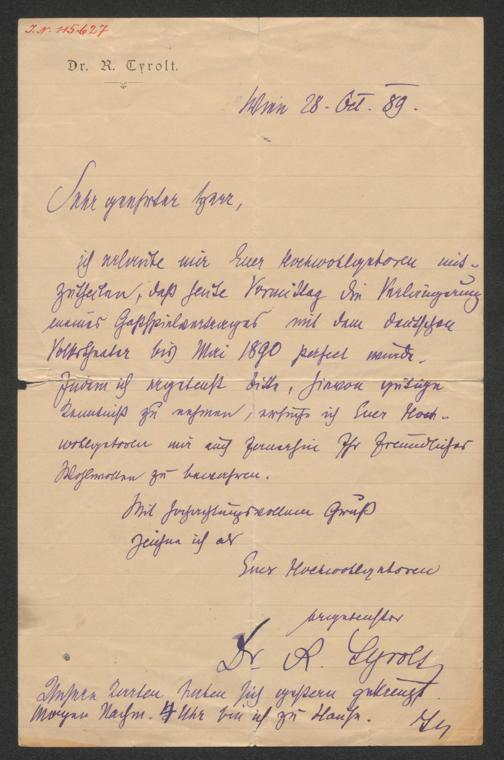 I.N. 115.627
Dr. R. Tyrolt.
Wien 28. Oct. 89.
Sehr geehrter Herr,
ich erlaube mir Euer Hochwohlgeboren mit-
zutheilen, daß heute Vormittag die Verlängerung
meines Gastspielvertrages mit dem deutschen
Volkstheater bis Mai 1890 perfect wurde.
Indem ich ergebenst bitte, hievon gütige
Kenntniß zu nehmen, ersuche ich Euer Hoch-
wohlgeboren mir auch fernerhin Ihr freundliches
Wohlwollen zu bewahren.
Mit hochachtungsvollem Gruß
zeichne ich als
Euer Hochwohlgeboren
ergebenster
Dr R. Tyrolt
Unsere Karten haben sich gestern gekreuzt.
Morgen Nachm. 4 Uhr bin ich zu Hause.